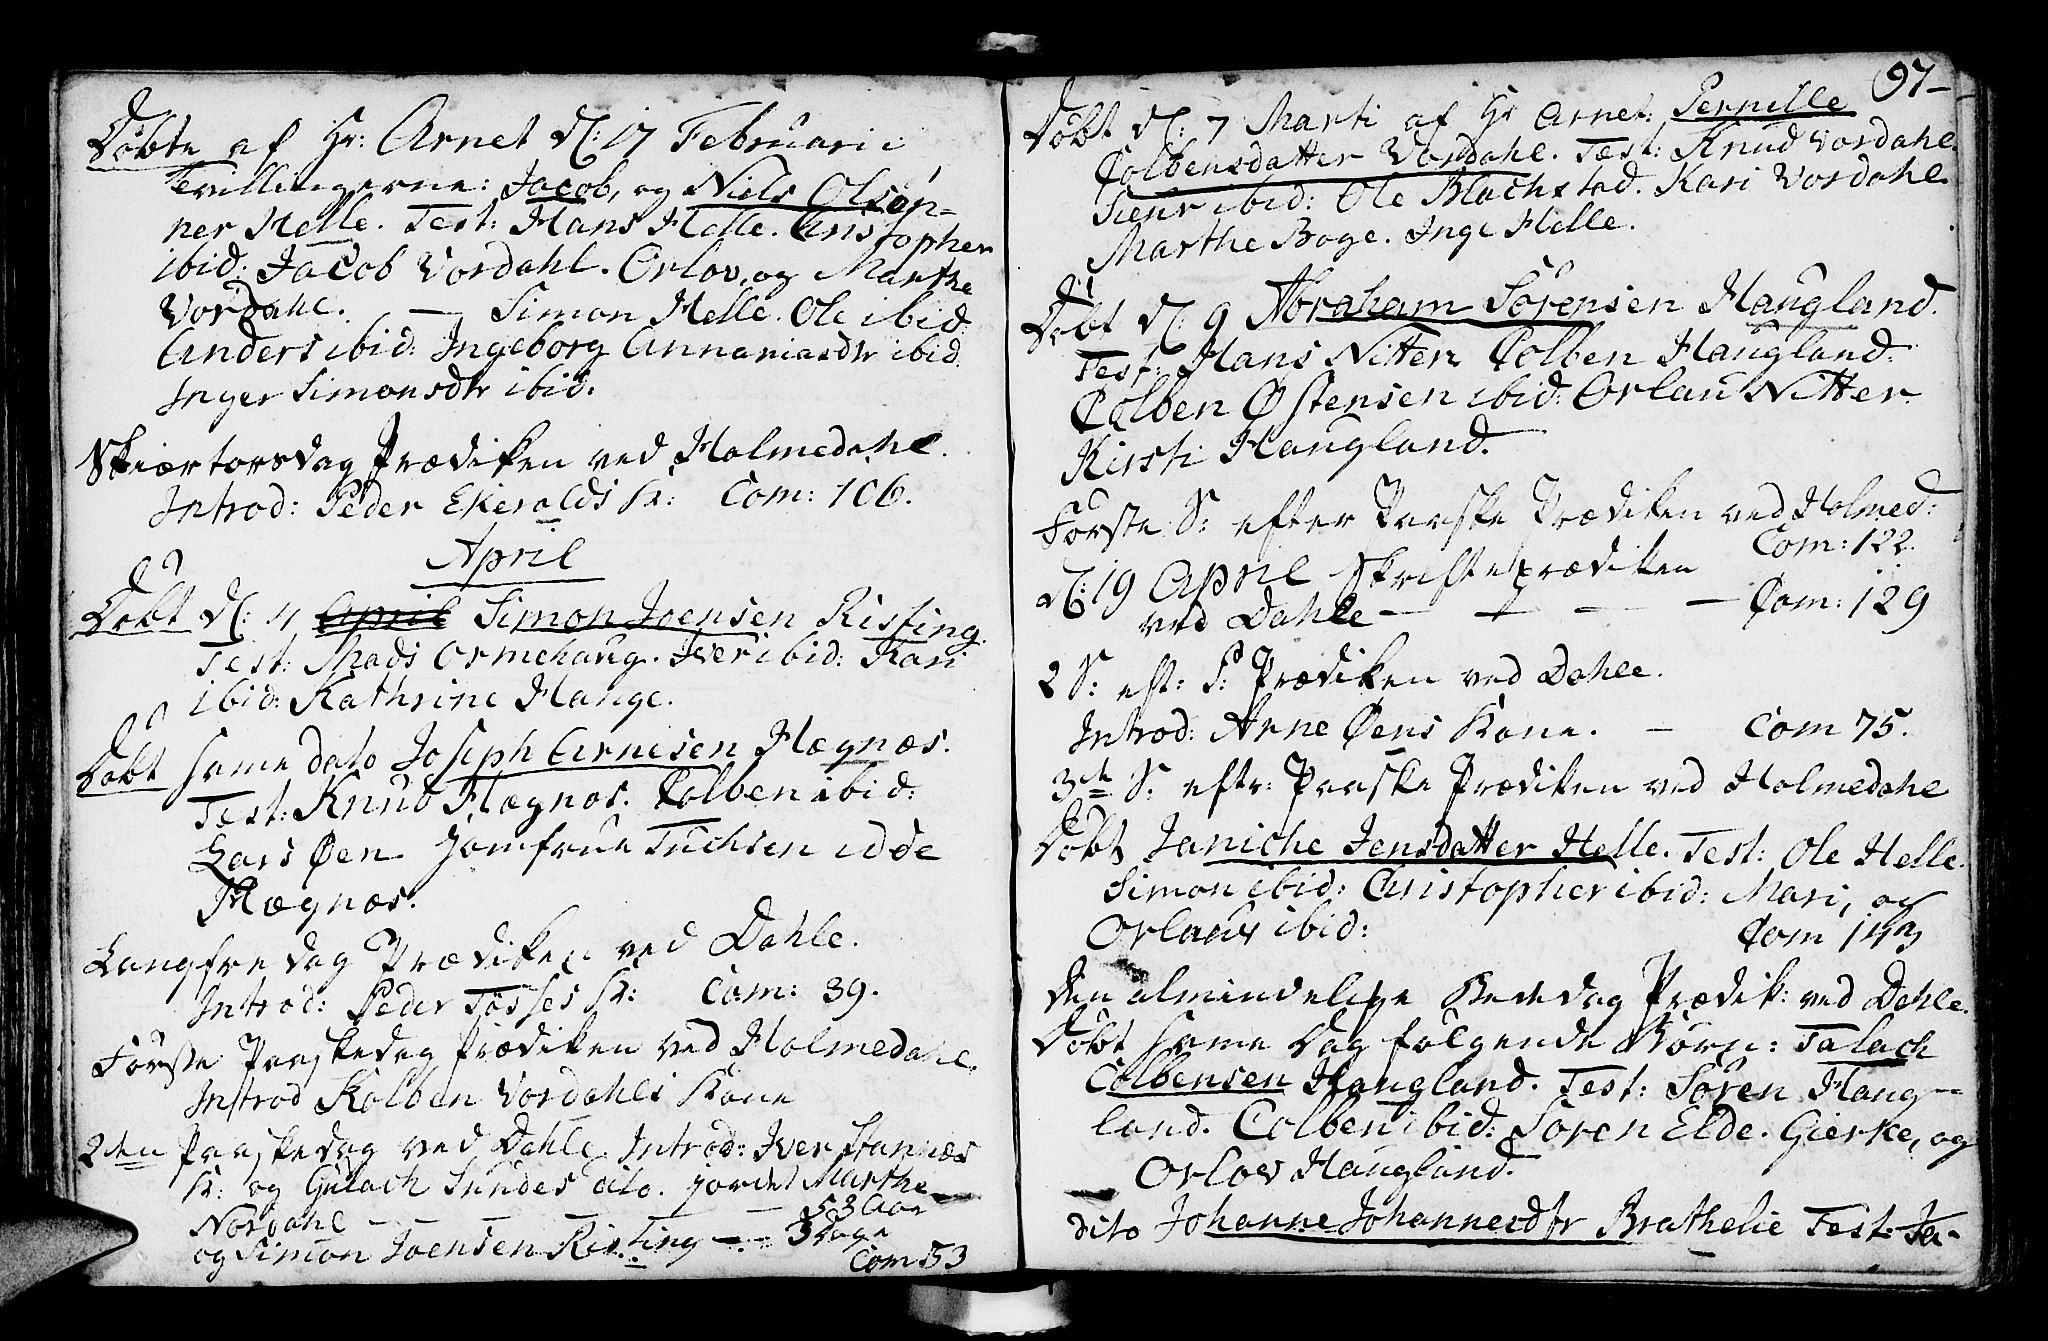 Döbte af Hr: Arnet d: 17 Februarii
Tvillingerne: Jacob, og Niels Olsøn-
ner Helle. Test: Hans Helle. Christopher
ibid: Jacob Vordahl. Orlov, og Marthe
Vordahl. — Simon Helle. Ole ibid:
Anders ibid: Ingeborg Annaniasdtr ibid.
Inger Simonsdtr ibid:
Skiærtorsdag Prædiken ved Holmedahl.
Introd: Peder Ekeralds K: Com: 106.
April
Döbt d: 4 April Simon Joensen Risting.
Test: Mads Ormehaug. Iver ibid: Kari
ibid: Kathrine Hauge.
Döbt samme dato Joseph Arnesen Hægnæs.
Test: Knud Hægnæs. Colben ibid:
Lars Øen. Jomfrue Tuchsen idde
Hægnæs.
Langfredag Prædiken ved Dahle.
Introd: Peder Tøsses K: Com: 39.
Förste Paaskedag Prædiken ved Holmedahl.
Introd Kolben Vordahls Kone
2den Paaskedag ved Dahle Introd: Iver Stannæs
K: og Gulach Sundes dito. jordet Marthe
Nordahl — — — 53 Aar
og Simon Joensen Risting — 3 Dage
Com 53
97
Döbt d: 7 Marti af Hr Arnet: Pernille
Colbensdatter Vordahl. Test: Knud Vordahl.
Siur ibid: Ole Blachstad. Kari Vordahl.
Marthe Boge. Inge Helle.
Döbt d: 9 Abraham Sörensen Haugland.
Test: Hans Nitter Colben Haugland.
Colben Østensen ibid: Orlau Nitter.
Kirsti Haugland.
Förste S: efter Paaske Prædiken ved Holmed:
Com: 122.
d: 19 April Skrifteprædiken
ved Dahle — — — — Com: 129
2 S: eft: P: Prædiken ved Dahle.
Introd: Arne Øens Kone. — Com 75.
3de S: eftr: Paaske Prædiken ved Holmedahl
Döbt Janiche Jensdatter Helle. Test: Ole Helle.
Simon ibid: Christopher ibid: Mari, og
Orlau ibid:
Com
Den almindelige Bededag Prædik: ved Dahle.
Döbt samme Dag fölgende Börn: Talach
Colbensen Haugland. Test: Sören Haug-
land. Colben ibid: Sören Elde. Gierke, og
Orlov Haugland.
dito Johanne Johannesdtr Brathelie Test: Ja-